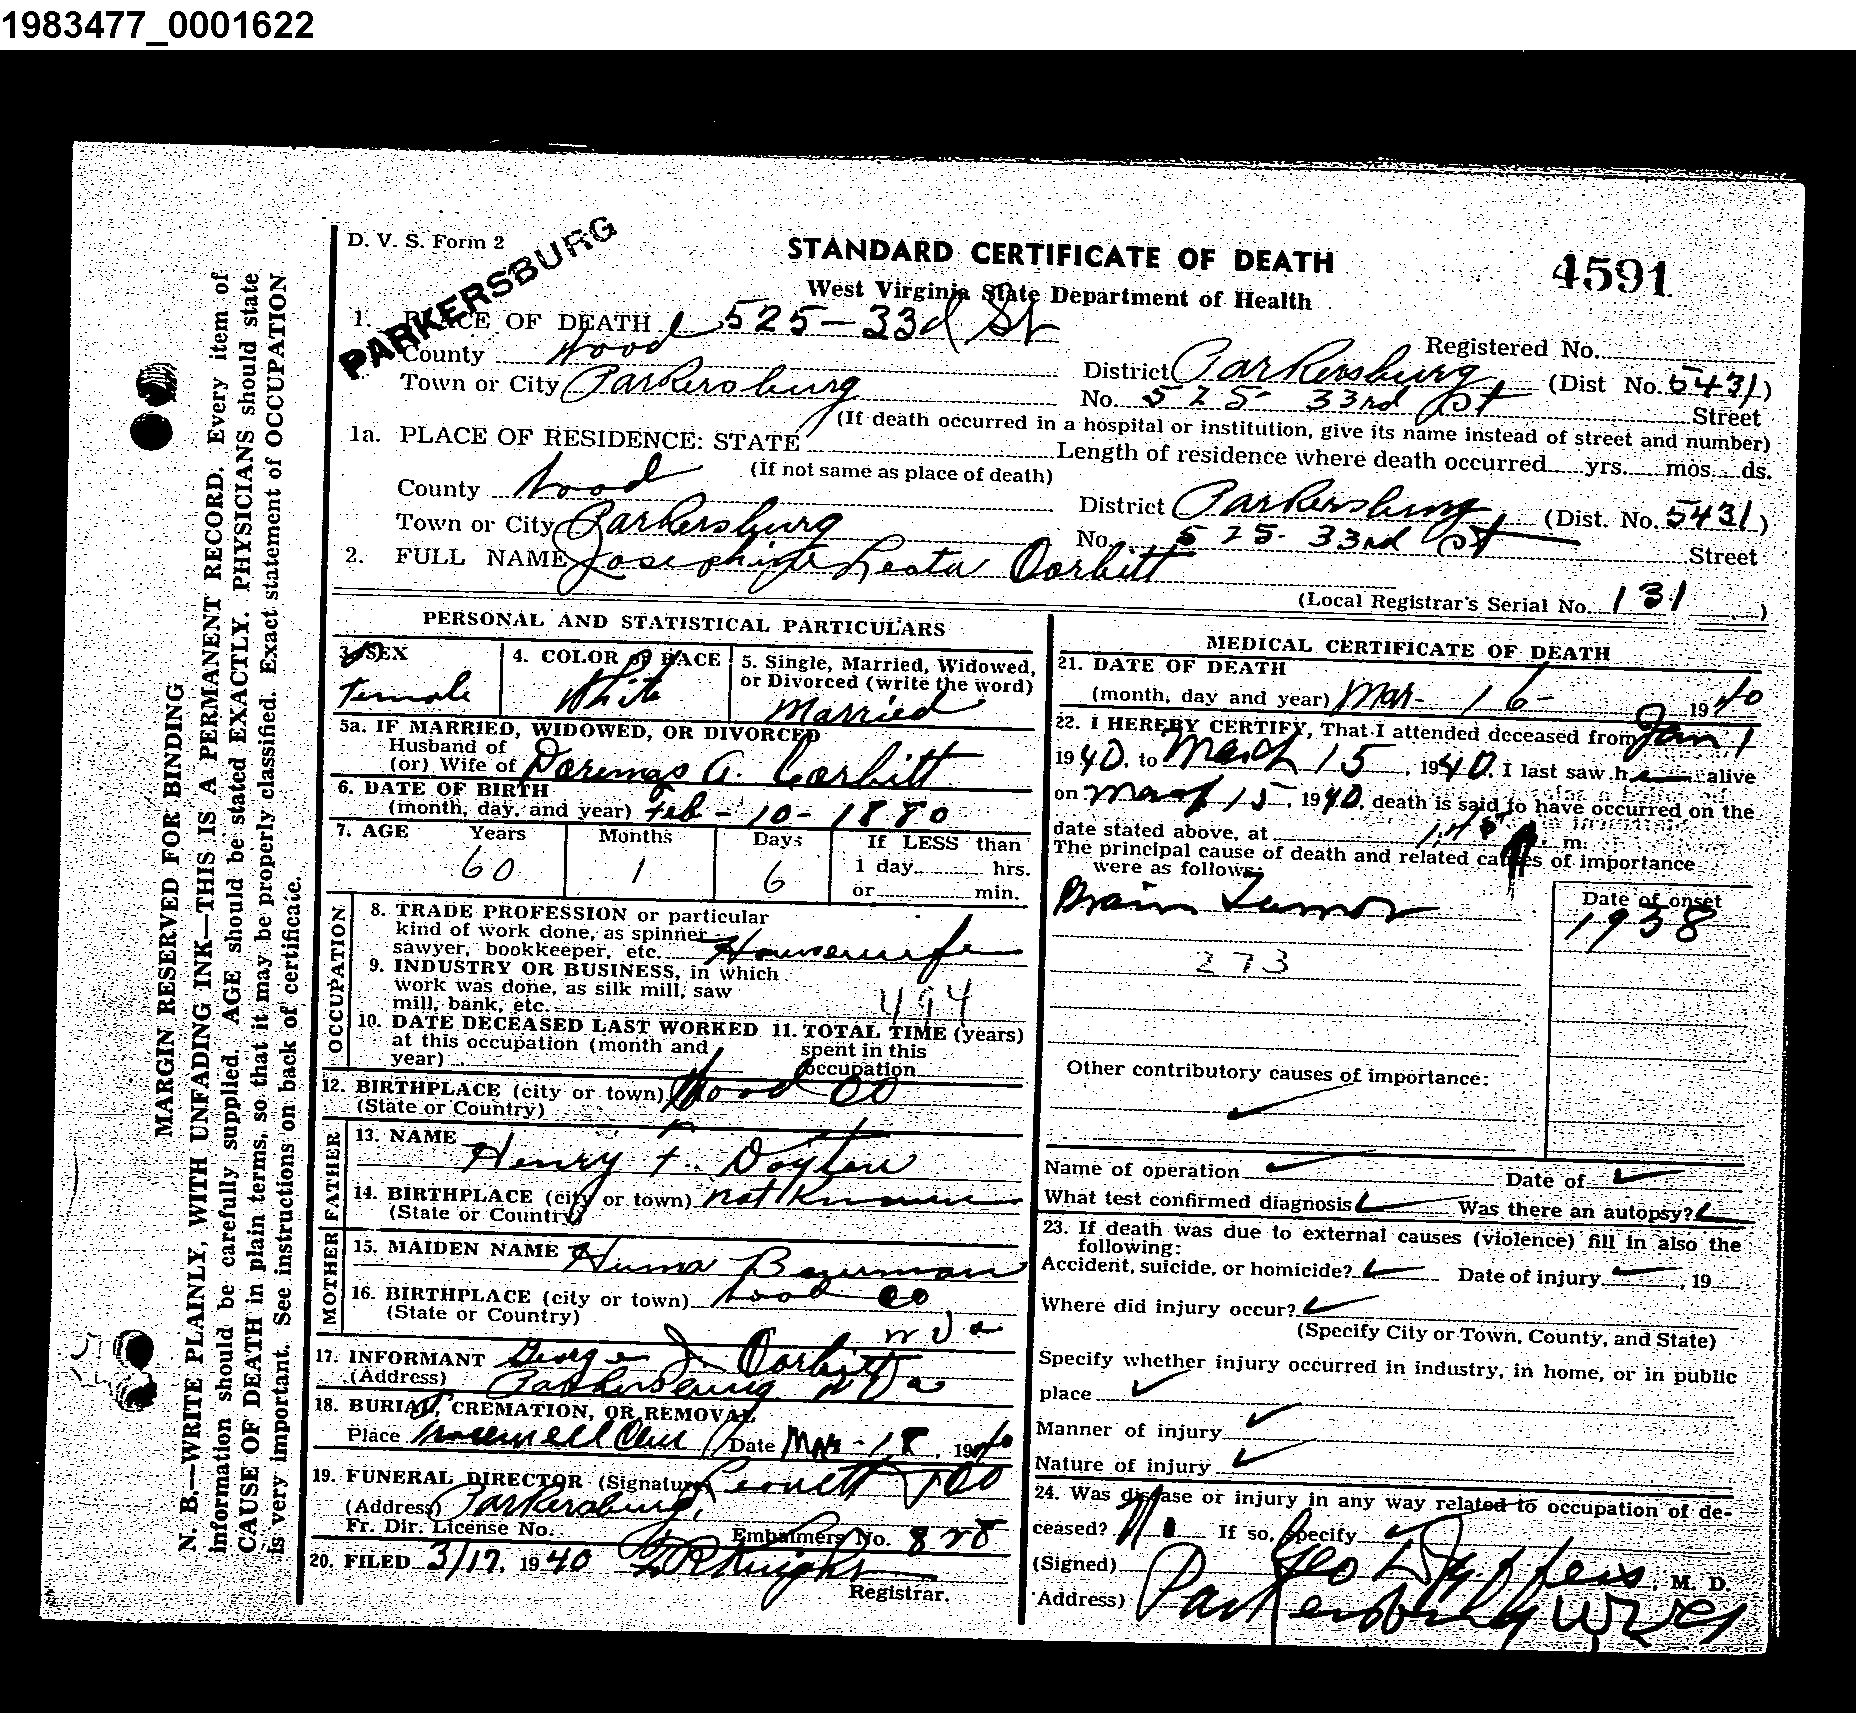 1983477_0001622
D. V. S. Form 2
PARKERSBURG
STANDARD CERTIFICATE OF DEATH
4591
West Virginia State Department of Health
1. PLACE OF DEATH 525-33d St
Registered No.
County Wood
District Parkersburg (Dist No. 5431)
Town or City Parkersburg
No. 525 33rd St Street
(If death occurred in a hospital or institution, give its name instead of street and number)
1a. PLACE OF RESIDENCE: STATE
Length of residence where death occurred yrs. mos. ds.
(If not same as place of death)
County Wood
District Parkersburg (Dist. No. 5431)
Town or City Parkersburg
No. 525- 33rd St Street
2. FULL NAME Josephine Leota Corbitt
(Local Registrar's Serial No. 131)
PERSONAL AND STATISTICAL PARTICULARS
3. SEX
Female
4. COLOR or RACE
White
5. Single, Married, Widowed,
or Divorced (write the word)
Married
5a. IF MARRIED, WIDOWED, OR DIVORCED
Husband of
(or) Wife of A. Corbitt
6. DATE OF BIRTH
(month, day, and year) Feb-10-1880
7. AGE Years Months Days If LESS than
60 1 6 1 day hrs.
or min.
OCCUPATION
8. TRADE PROFESSION or particular
kind of work done, as spinner
sawyer, bookkeeper, etc. Housewife
9. INDUSTRY OR BUSINESS, in which
work was done, as silk mill, saw
mill, bank, etc.
494
10. DATE DECEASED LAST WORKED
at this occupation (month and
year)
11. TOTAL TIME (years)
spent in this
occupation
12. BIRTHPLACE (city or town) Wood Co
(State or Country)
FATHER
13. NAME Henry F. Doyten
14. BIRTHPLACE (city or town) not Known
(State or Country)
MOTHER
15. MAIDEN NAME Bowman
16. BIRTHPLACE (city or town) Wood Co
(State or Country) W Va
17. INFORMANT George J. Corbitt
(Address) Parkersburg W Va
18. BURIAL, CREMATION, OR REMOVAL
Place Cem Date Mar-18, 1940
19. FUNERAL DIRECTOR (Signature) Leavitt & Co
(Address) Parkersburg,
Fr. Dir. License No. Embalmers No. 828
20. FILED 3/17, 1940 Knight
Registrar.
MEDICAL CERTIFICATE OF DEATH
21. DATE OF DEATH
(month, day and year) Mar- 16- 1940
22. I HEREBY CERTIFY, That I attended deceased from Jan 1
1940, to March 15, 1940, I last saw h alive
on March 15, 1940, death is said to have occurred on the
date stated above, at m.
The principal cause of death and related causes of importance
were as follows:
Date of onset
Brain Tumor 1938
273
Other contributory causes of importance:
Name of operation Date of
What test confirmed diagnosis Was there an autopsy?
23. If death was due to external causes (violence) fill in also the
following:
Accident, suicide, or homicide? Date of injury , 19
Where did injury occur?
(Specify City or Town, County, and State)
Specify whether injury occurred in industry, in home, or in public
place
Manner of injury
Nature of injury
24. Was disease or injury in any way related to occupation of de-
ceased? No If so, specify
(Signed) Geo , M. D.
Address) Parkersburg W Va
MARGIN RESERVED FOR BINDING
N. B.—WRITE PLAINLY, WITH UNFADING INK—THIS IS A PERMANENT RECORD. Every item of
information should be carefully supplied. AGE should be stated EXACTLY. PHYSICIANS should state
CAUSE OF DEATH in plain terms, so that it may be properly classified. Exact statement of OCCUPATION
is very important. See instructions on back of certificate.